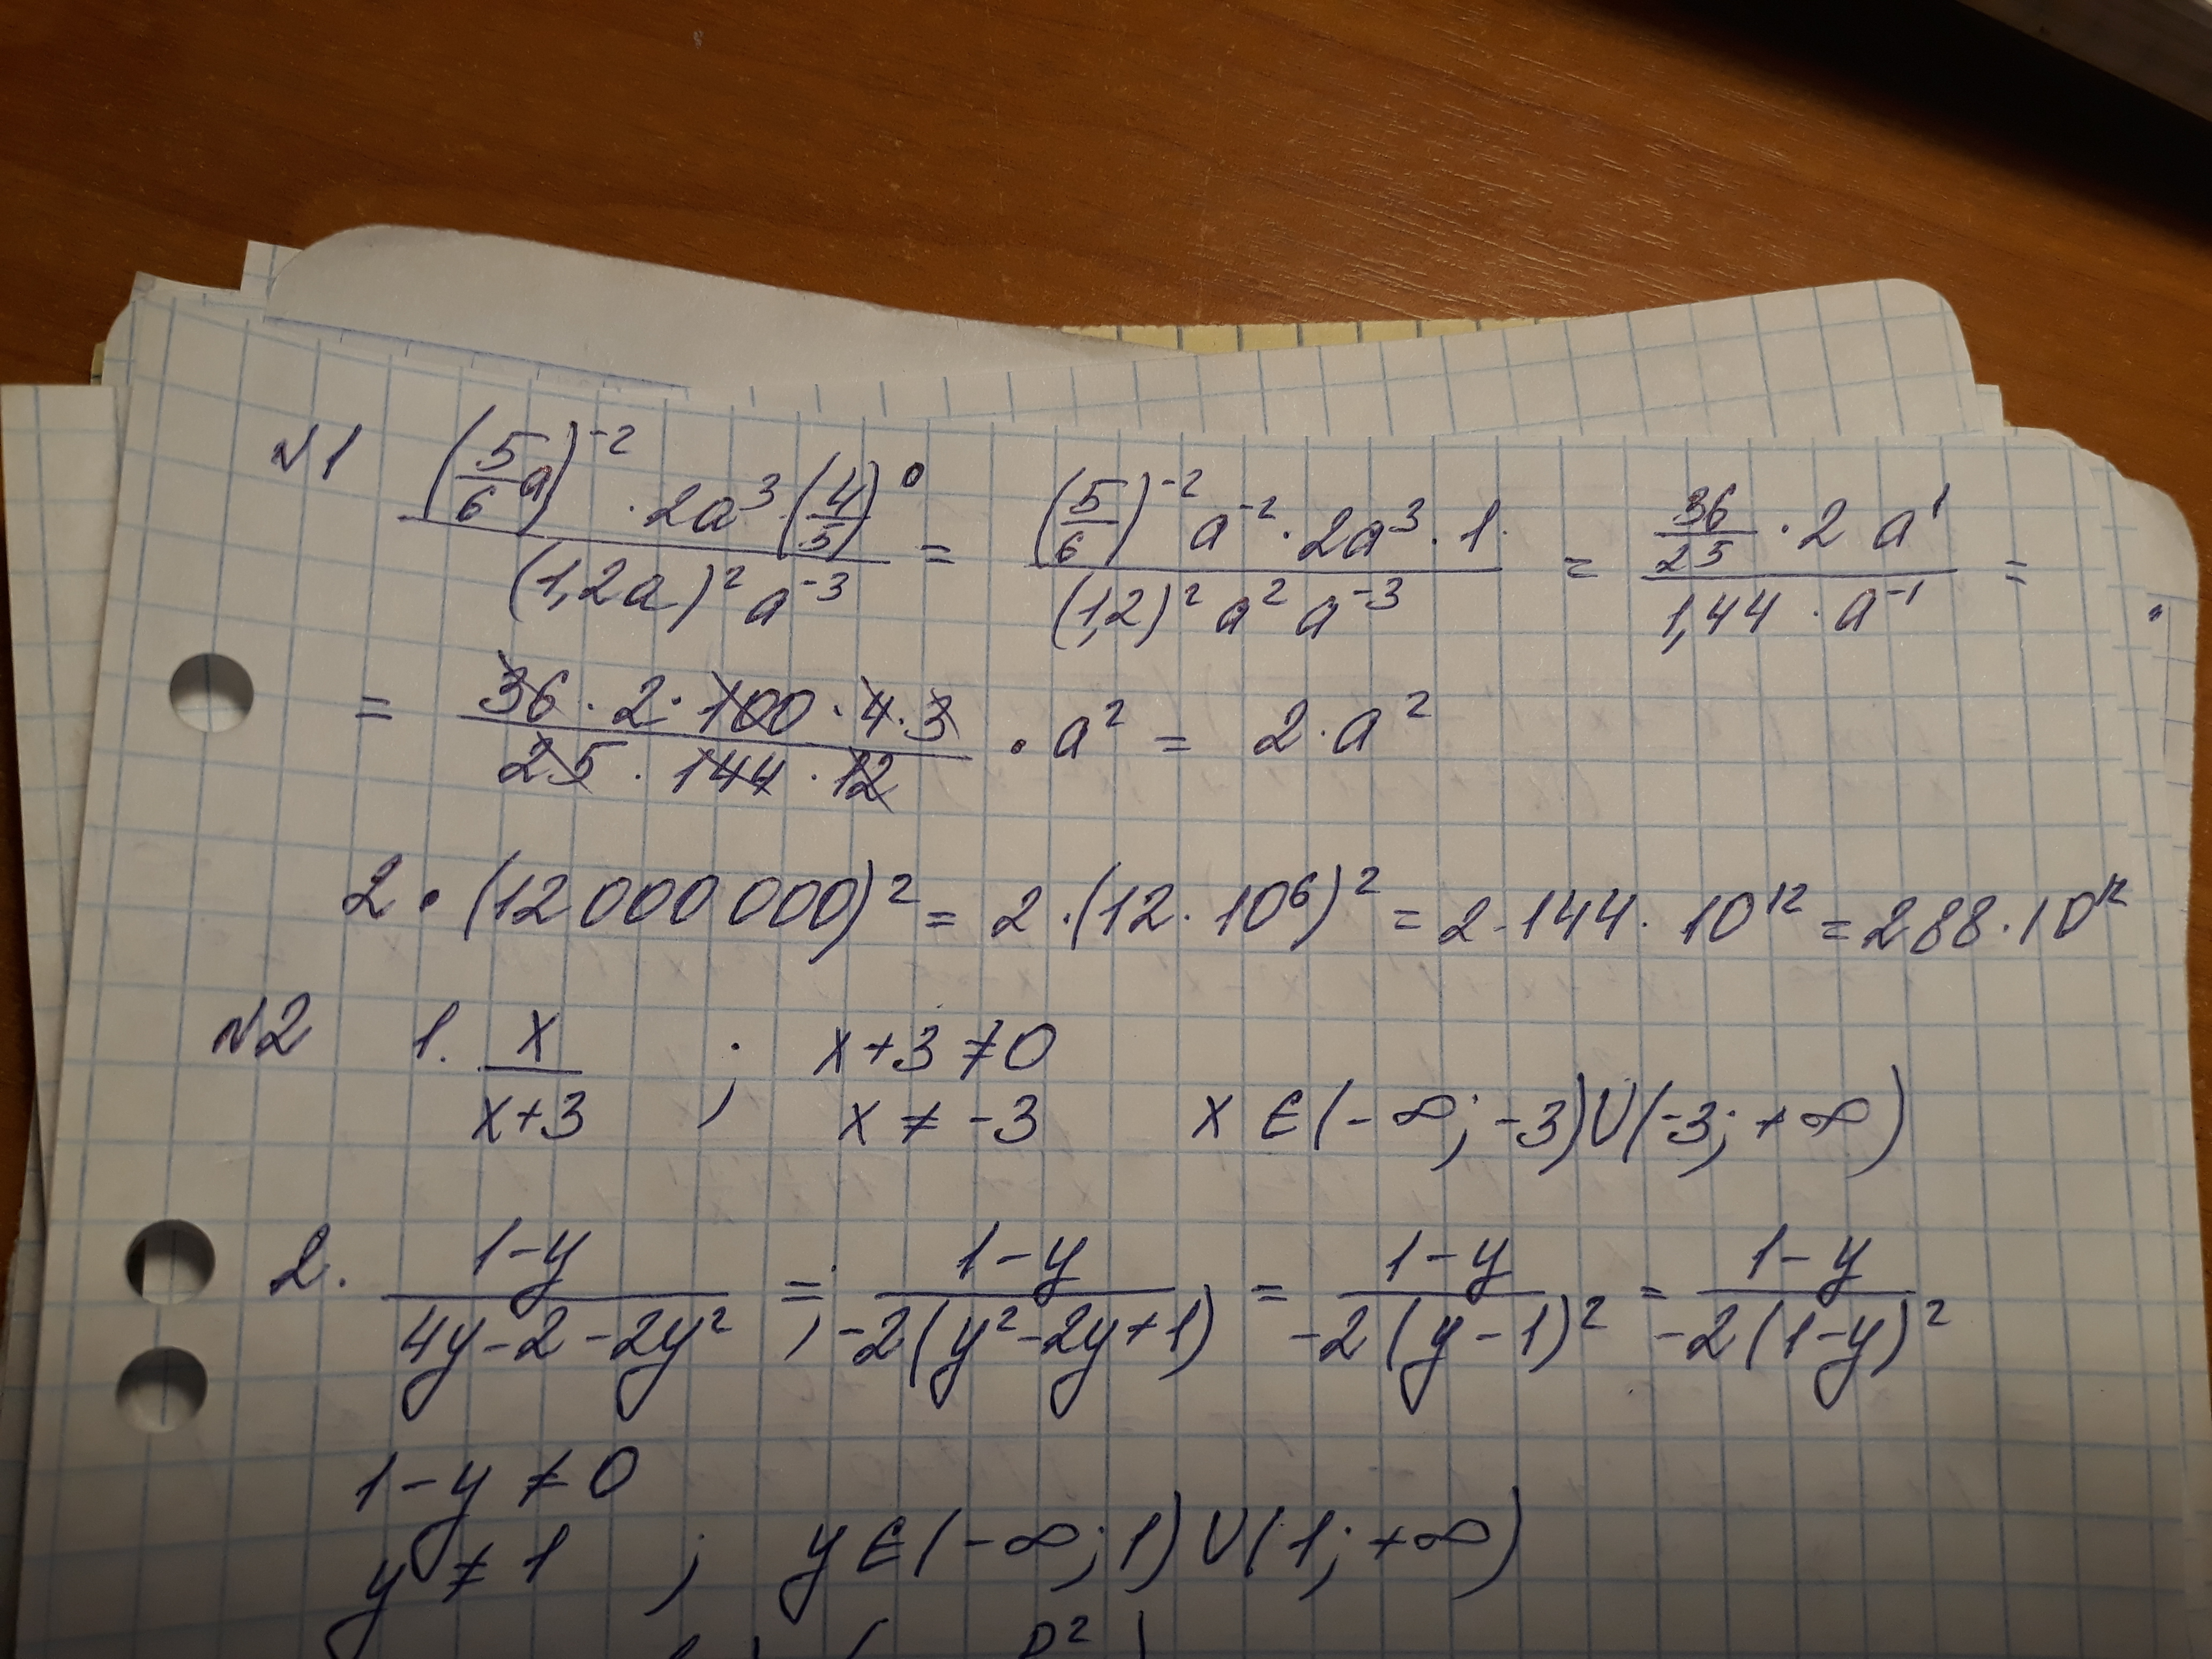 №1 ((5/6)a)⁻² · 2a³ (4/5)⁰ / (1,2a)² a⁻³ = (5/6)⁻² a⁻² · 2a³ · 1 / (1,2)² a² a⁻³ = (36/25) · 2 a¹ / 1,44 · a⁻¹ =
= 36 · 2 · 100 · 4 · 3 / 25 · 144 · 12 · a² = 2 · a²
2 · (12 000 000)² = 2 · (12 · 10⁶)² = 2 · 144 · 10¹² = 288 · 10¹²
№2 1. x / x+3 ; x+3 ≠ 0
x ≠ -3 x ∈ (-∞; -3) ∪ (-3; +∞)
2. 1-y / 4y-2-2y² =; 1-y / -2(y²-2y+1) = 1-y / -2(y-1)² = 1-y / -2(1-y)²
1-y ≠ 0
y ≠ 1 ; y ∈ (-∞; 1) ∪ (1; +∞)